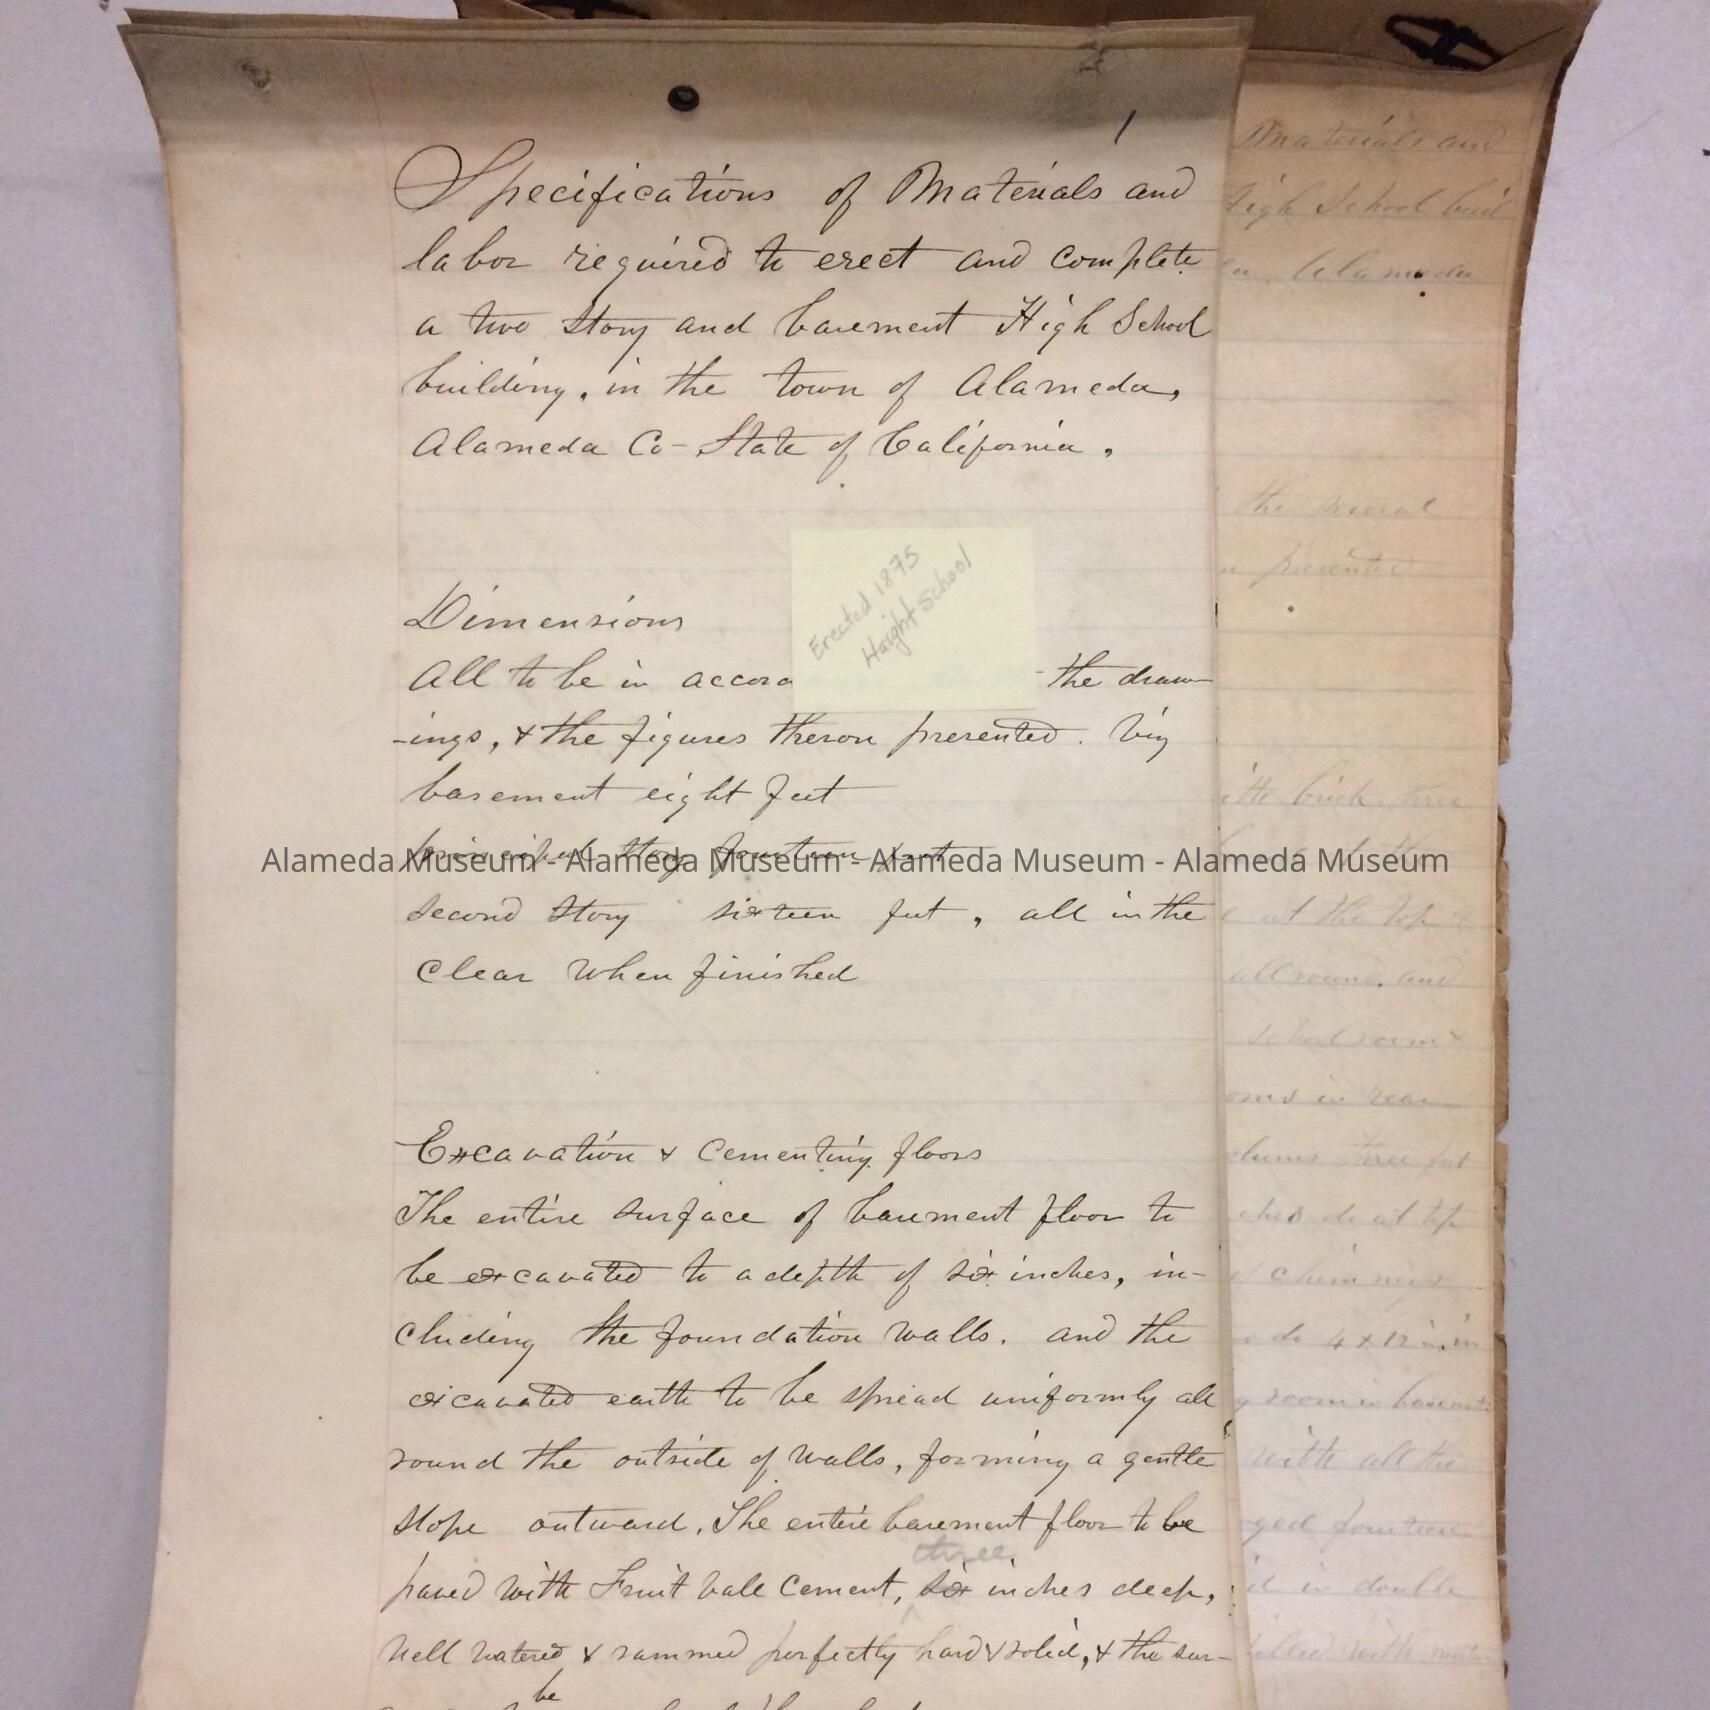 1
Specifications of Materials and
labor required to erect and complete
a two story and basement High School
building, in the town of Alameda,
Alameda Co- State of California.
Erected 1875
Haight School
Dimensions
All to be in accord the draw-
-ings, & the figures theron presented. Viz
basement eight feet
principal story fourteen feet
Alameda Museum - Alameda Museum - Alameda Museum - Alameda Museum
second story sixteen feet, all in the
clear when finished
Excavation & cementing floors
The entire surface of basement floor to
be excavated to a depth of six inches, in-
cluding the foundation walls. and the
excavated earth to be spread uniformly all
round the outside of walls, forming a gentle
slope outward. The entire basement floor to be
three
paved with Fruit vale cement, six inches deep,
well watered & rammed perfectly hard & solid, & the sur-
be
Materials and
High School buil
Alameda
the several
presented
ith brick three
at the top &
all round, and
school room &
oms in rear
three feet
ches do at top
chimneys
do 4 x 12 in. in
room in basement
with all the
ged fourteen
in double
filled with